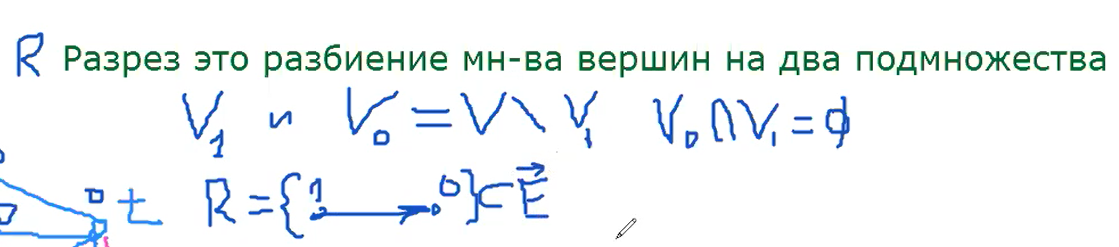 R Разрез это разбиение мн-ва вершин на два подмножества
V₁ и V₀ = V \ V₁ V₀ ∩ V₁ = ∅
0 t R = { 1 → 0 } ⊂ E⃗